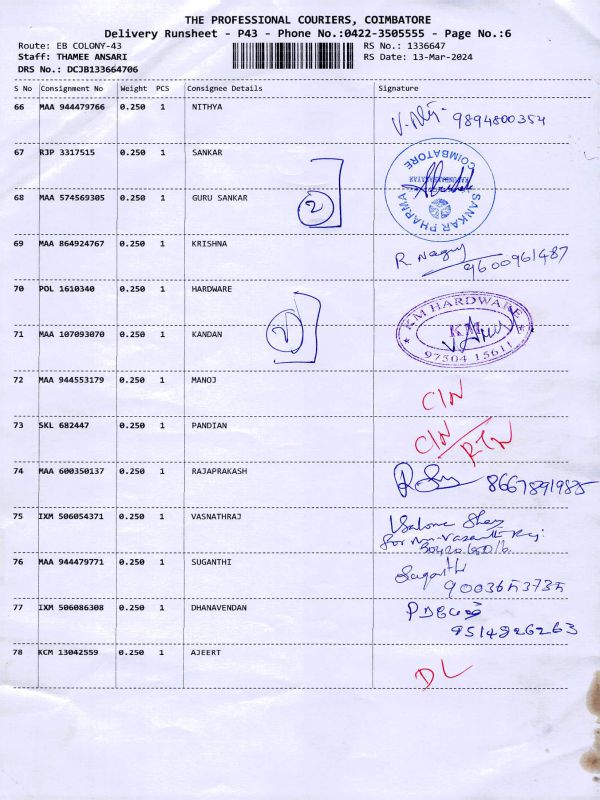 THE PROFESSIONAL COURIERS, COIMBATORE
Delivery Runsheet - P43 - Phone No.:0422-3505555 - Page No.:6
Route: EB COLONY-43 RS No.: 1336647
Staff: THAMEE ANSARI RS Date: 13-Mar-2024
DRS No.: DCJB133664706
S No Consignment No Weight PCS Consignee Details Signature
66 MAA 944479766 0.250 1 NITHYA 9894800354
67 RJP 3317515 0.250 1 SANKAR
COIMBATORE
SANKAR PHARMA
2
68 MAA 574569305 0.250 1 GURU SANKAR
69 MAA 864924767 0.250 1 KRISHNA R Nagu 9600961487
70 POL 1610340 0.250 1 HARDWARE
KM HARDWARE
KM
97504 15611
71 MAA 107093070 0.250 1 KANDAN
72 MAA 944553179 0.250 1 MANOJ CIN
73 SKL 682447 0.250 1 PANDIAN CIN RTN
74 MAA 600350137 0.250 1 RAJAPRAKASH 8667891985
75 IXM 506054371 0.250 1 VASNATHRAJ
76 MAA 944479771 0.250 1 SUGANTHI Suganthi
9003653735
77 IXM 506086308 0.250 1 DHANAVENDAN
9514826263
78 KCM 13042559 0.250 1 AJEERT DL